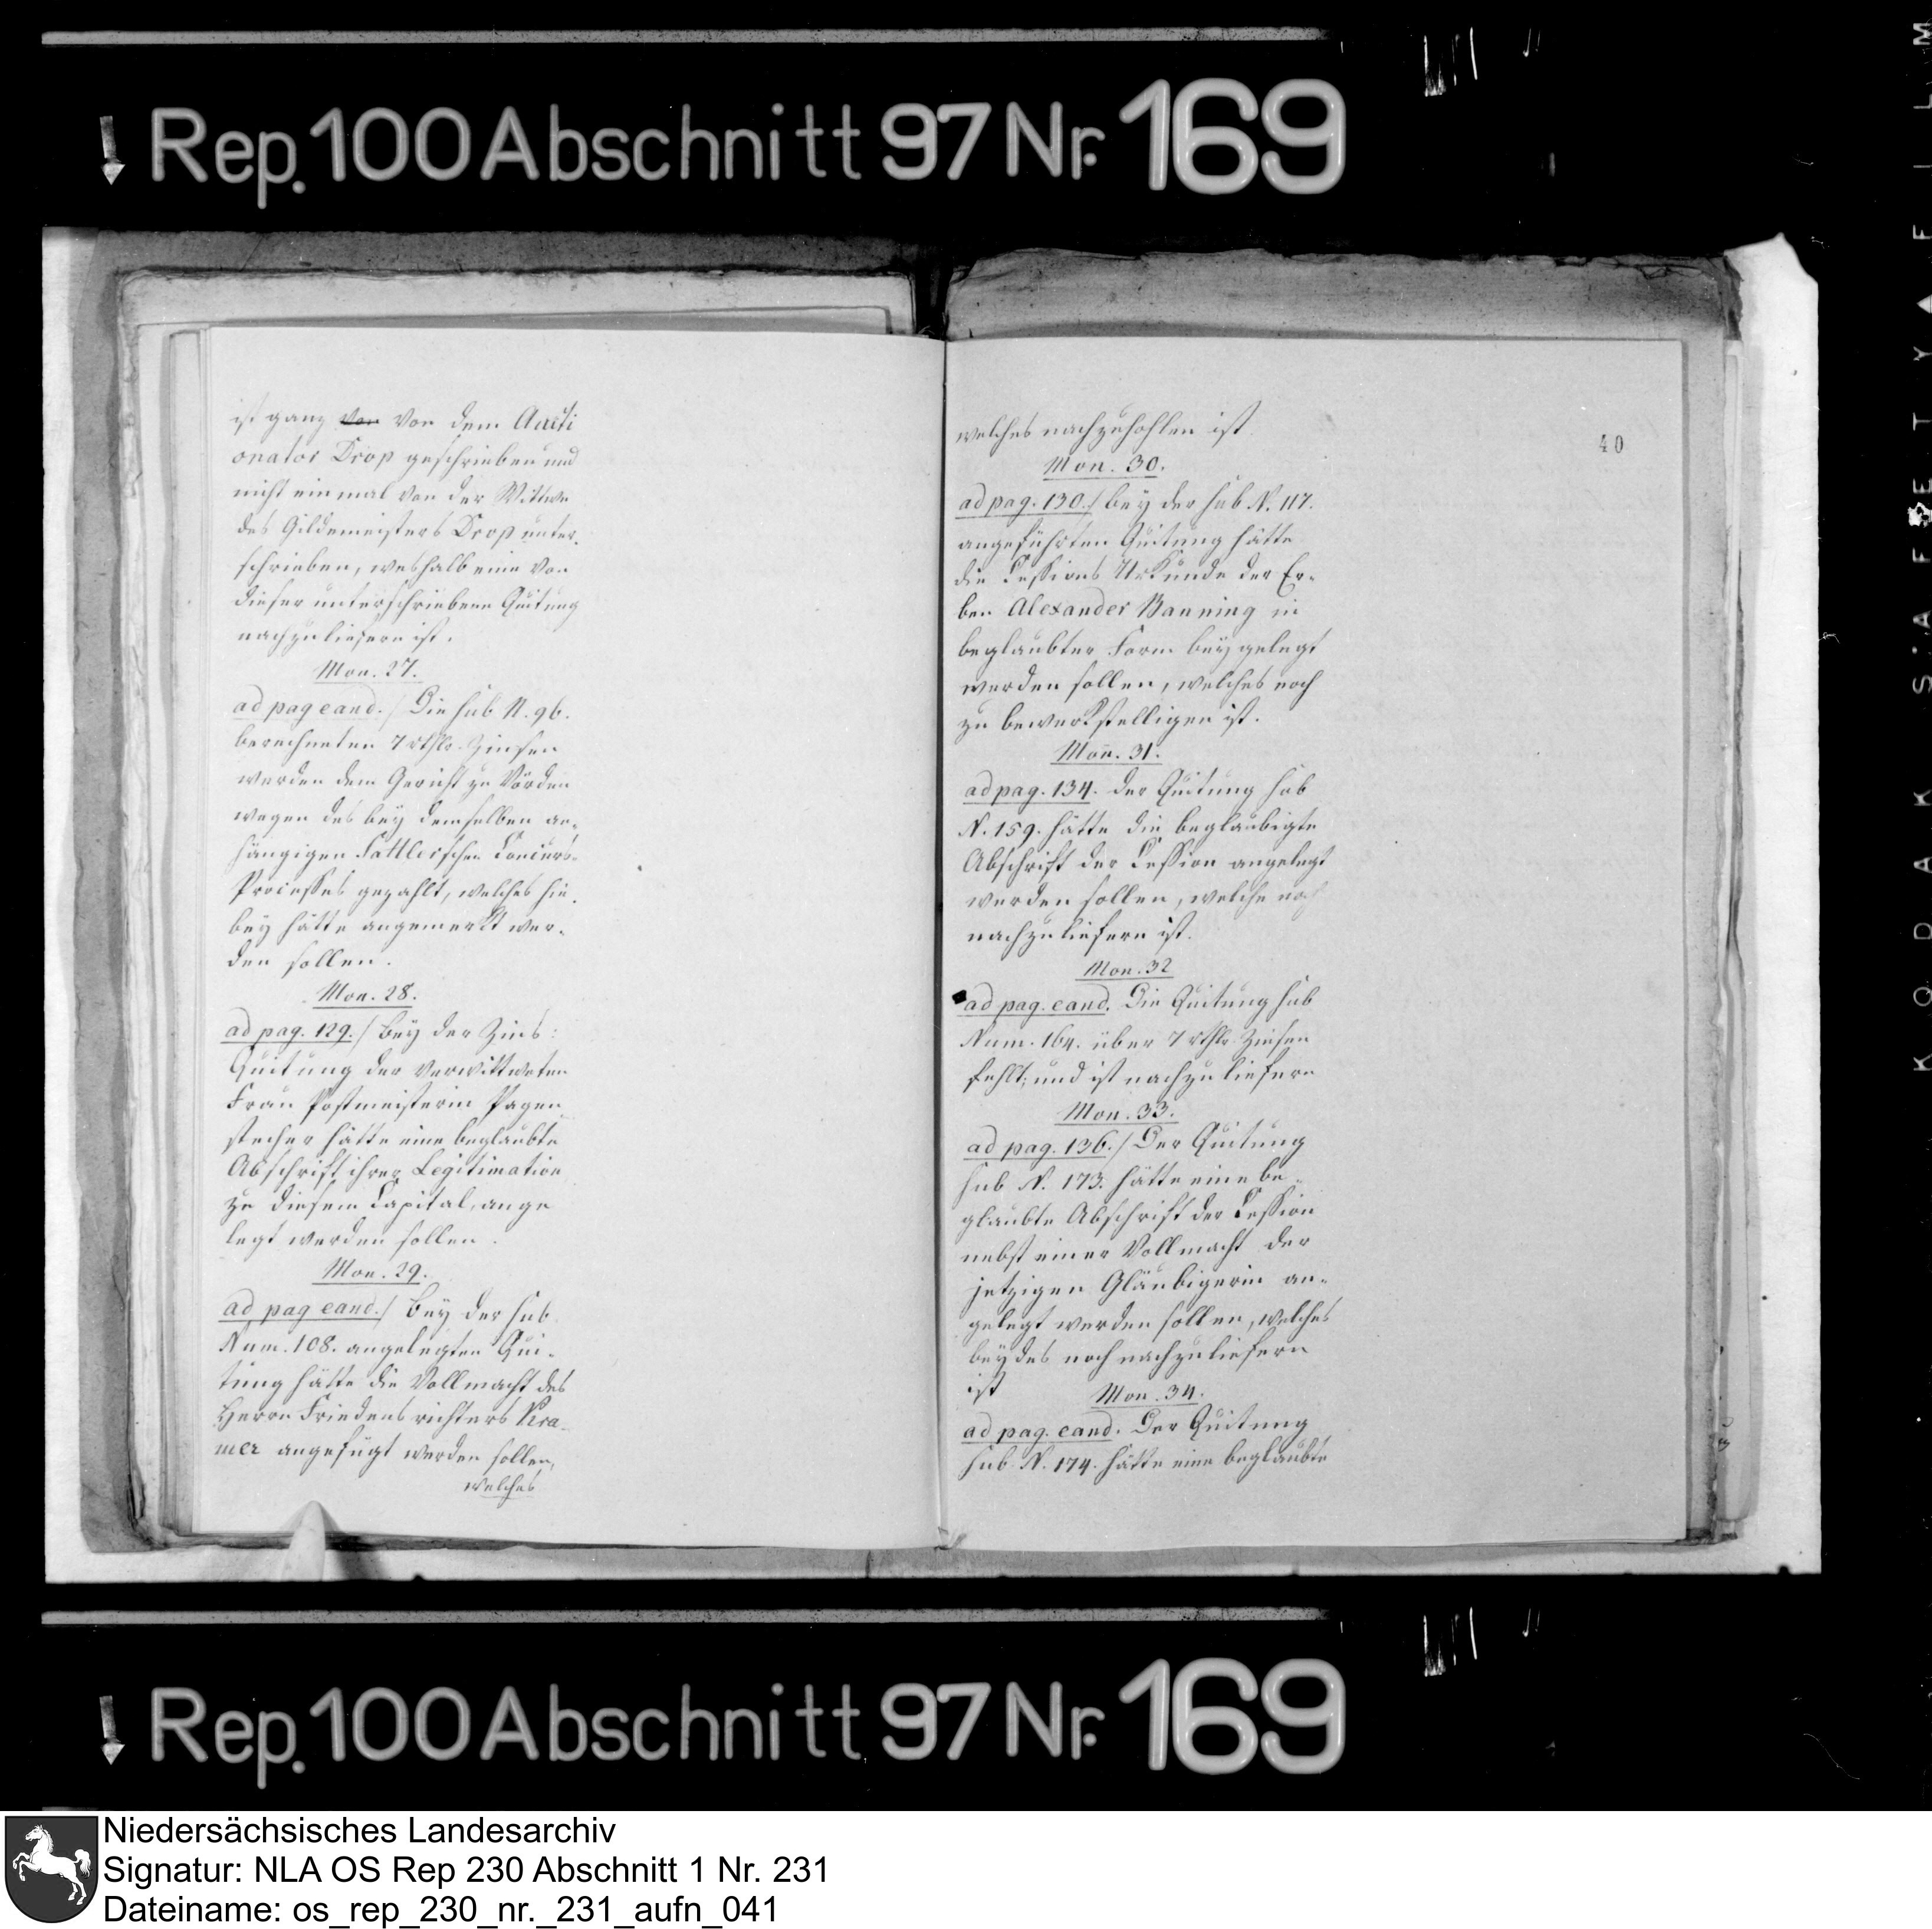 Rep. 100 Abschnitt 97 Nr. 169
ist ganz von von dem Aucti
onator Drop geschrieben und
nicht einmal von der Wittwe
des Gildemeisters Drop unter.
schrieben, weshalb eine von
dieser unterschriebene Quitung
nachzuliefern ist.
Mon. 27.
ad pag eand./ Die sub N. 96.
berechneten 7 rthlr. Zinsen
werden dem Gericht zu Vörden
wegen des bey demselben an-
hängigen Sattlerschen Concurs-
Processes gezahlt, welches hie.
bey hätte angemerkt wer-
den sollen.
Mon. 28.
ad pag. 129./ Bey der Zins:
Quitung der verwittweten
Frau Postmeisterin Pagen
stecher hätte eine beglaubte
Abschrift ihrer Legitimation
zu diesem Capital, ange
legt werden sollen.
Mon. 29.
ad pag eand./ Bey der sub
Num. 108. angelegten Qui-
tung hätte die Vollmacht des
Herrn Friedensrichters Kra-
mer angefügt werden sollen,
welches
40
welches nachzuhohlen ist.
Mon. 30.
ad pag. 130./ Bey der sub N. 117.
angeführten Quitung hätte
die Cessions Urkunde der Er-
ben Alexander Banning in
beglaubter Form beygelegt
werden sollen, welches noch
zu bewerkstelligen ist.
Mon. 31.
ad pag. 134. Der Quitung sub
N. 159. hätte die beglaubigte
Abschrift der Cession angelegt
werden sollen, welche noch
nachzuliefern ist.
Mon. 32
ad pag. eand. Die Quitung sub
Num. 164. über 7 rthlr. Zinsen
fehlt, und ist nachzuliefern
Mon. 33.
ad pag. 136./ Der Quitung
sub N. 173. hätte eine be-
glaubte Abschrift der Cession
nebst einer Vollmacht der
jetzigen Gläubigerin an-
gelegt werden sollen, welches
beydes noch nachzuliefern
ist
Mon. 34.
ad pag. eand. Der Quitung
sub N. 174. hätte eine beglaubte
Rep. 100 Abschnitt 97 Nr. 169
KODAK SAFETY FILM
Niedersächsisches Landesarchiv
Signatur: NLA OS Rep 230 Abschnitt 1 Nr. 231
Dateiname: os_rep_230_nr._231_aufn_041